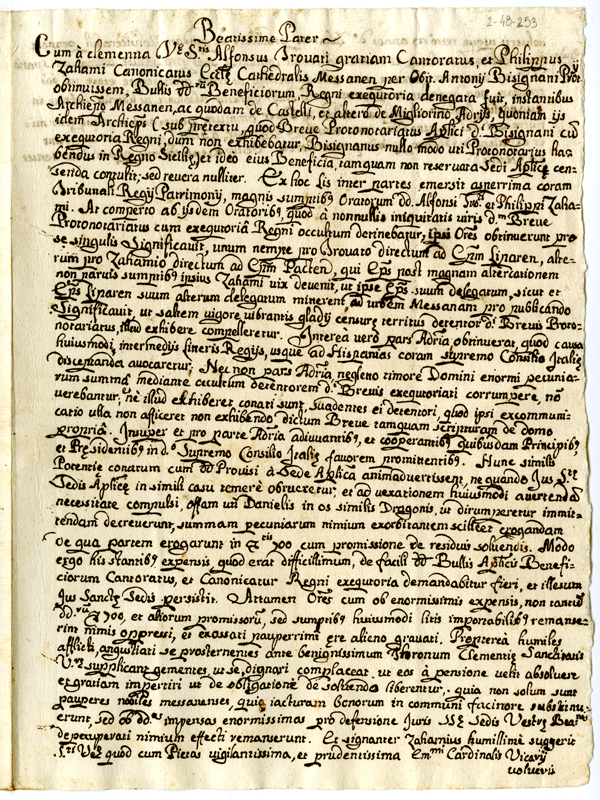 2-48-253
Beatissime Pater
Cum à clementia Vræ Stis Alfonsus Trovati gratiam Cantoratus, et Philippus
Zahami Canonicatus Ecclæ Cathedralis Messanen per Obit. Antonij Bisignani Prot.
obtinuissent, Bullis dd. Beneficiorum Regni exequutoria denegata fuit, instantibus
Archiepo Messanen, ac quodam de Castelli, et altero de Migliorino Adrijs, quoniam ijs
idem Archieps (sub prætextu, quod Breve Protonotariatus Aplici d. Bisignani cu
exequutoria Regni, dum non exhibebatur, Bisignanus nullo modo uti Protonotarius ha-
bendus in Regno Siciliæ, et ideo eius Beneficia, tamquam non reservata Sedi Aplicæ cen-
senda contulit, sed revera nulliter. Ex hoc lis inter partes emersit asperrima coram
Tribunali Regij Patrimonij, magnis sumptibq Oratorum dd. Alfonsi et Philippi Zaha-
mi. At comperto ab ijsdem Oratoribq, quod à nonnullis iniquitatis viris dm Breve
Protonotariatus cum exequutoria Regni occultum detinebatur, ipsi Ores obtinuerunt pro
se singulis Significavit, unum nempe pro Trovato directum ad Epm Liparen, alte-
rum pro Zahamio directum ad Epm Pacten, qui Eps post magnam altercationem
non parvis sumptibq ipsius Zahami vix devenit, ut ipse Eps suum delegatum, sicut et
Eps Liparen suum alterum delegatum minerent ad urbem Messanam pro publicando
Significavit, ut saltem vigore vibrantis gladij censuræ territus detentor d. Brevis Proto-
notariatus, illud exhibere compelleretur. Interea verò pars Adria, obtinuerat, quod causa
huiusmodi, intermedijs literis Regijs, usque ad Hispanias coram Supremo Consilio Italiæ
discepanda avocaretur; Nec non pars Adria, neglecto timore Domini enormi pecunia-
rum summa mediante occultum detentorem d. Brevis exequutoriati corrumpere, nō
verebantur; ne illud exhiberet conati sunt, suadentes ei detentori, quod ipsi excommuni-
catio ulla non afficeret non exhibendo dictum Breve tamquam scripturam de domo
propria. Insuper et pro parte Adria adiuvantibq, et cooperantibq quibusdam Principibq,
et Præsidentibq in d. Supremo Consilio Italiæ favorem promittentibq. Hunc similis
Potentiæ conatum cum dd. Provisi à Sede Aplica animadvertissent, ne quando Jus Stæ
Sedis Aplicæ in simili casu temere obrueretur, et ad vexationem huiusmodi avertendā
necessitate compulsi, offam uti Danielis in os similis Draconis, ut dirumperetur immit-
tendam decreverunt, summam pecuniarum nimium exorbitantem scilicet erogandam
de qua partem erogarunt in 700 cum promissione de residuis solvendis. Modo
ergo his stantibq expensis quod erat difficillimum, de facili dd. Bullis Aplicis Benefi-
ciorum Cantoratus, et Canonicatus Regni exequutoria demandabitur fieri, et illesum
Jus Sanctæ Sedis persistit. Attamen Ores cum ob enormissimis expensis, non tantū
dd. 700, et aliorum promissorū, sed sumptibq huiusmodi litis importabilibq remanse-
rint nimis oppressi, et exossati pauperrimi ære alieno gravati. Propterea humiles
afflicti, angustiati se prosternentes ante benignissimum Thronum Clementiæ Sanctitatis
Væ supplicant gementes, ut se dignari complaceat, ut eos à pensione velit absolvere
et gratiam impertiri ut de obligatione de solvendo liberentur, quia non solum sunt
pauperes nobiles messanenses, quia iacturam bonorum in communi facinore substinu-
erunt, sed ob dd. impensas enormissimas pro defensione Juris SSæ Sedis Vestræ Beat.
depauperati nimium effecti remanserunt. Et signanter Zahamius humillime suggerit
Sti Væ quod cum Pietas vigilantissima, et prudentissima Emmi Cardinalis Vicarij
voluerit